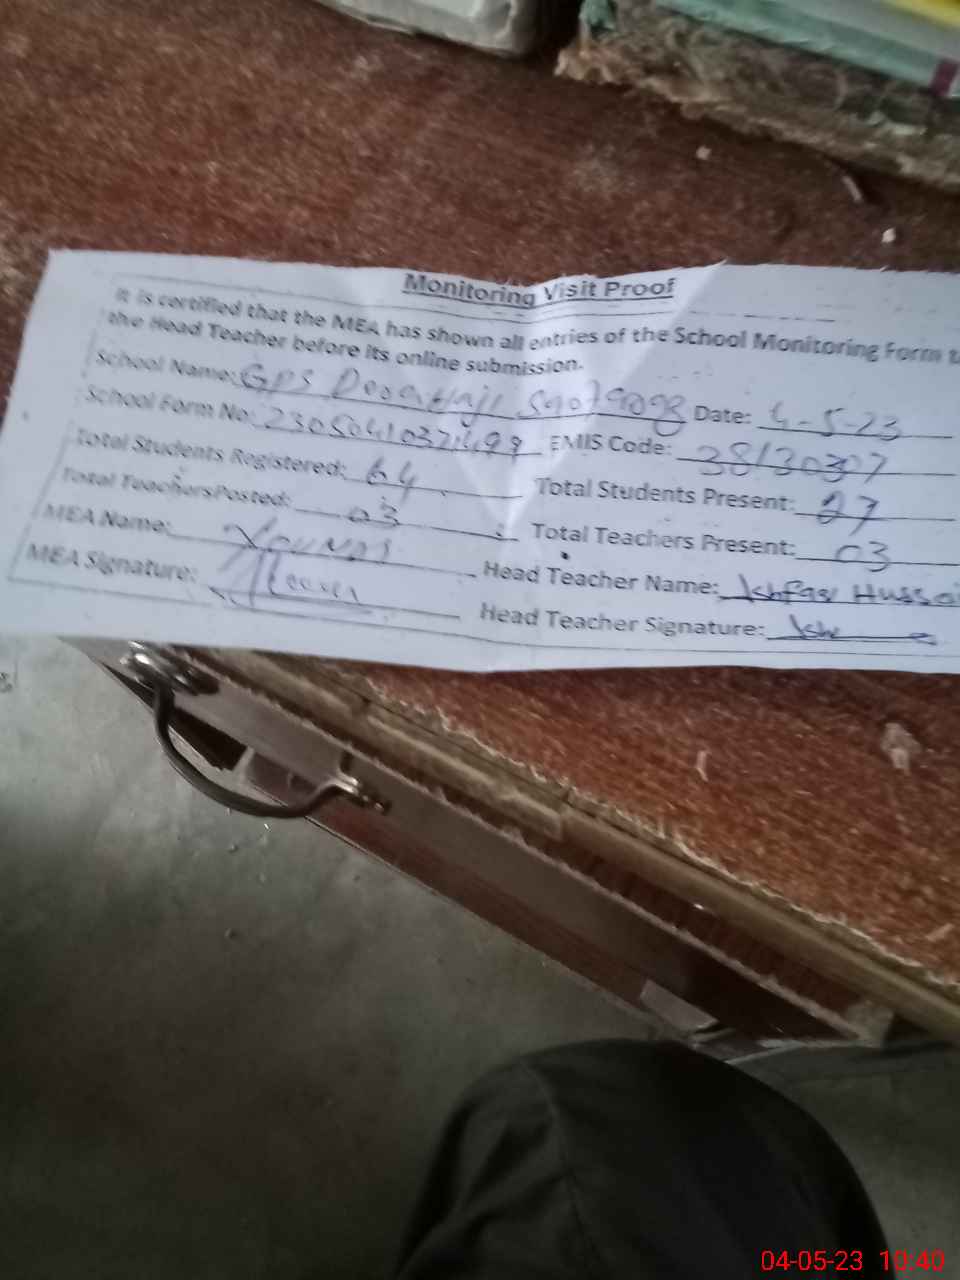 Monitoring Visit Proof
It is certified that the MEA has shown all entries of the School Monitoring Form
the Head Teacher before its online submission.
School Name: GPS Date: 4-5-23
School Form No: EMIS Code: 38130307
Total Students Registered: 64 Total Students Present: 27
Total TeachersPosted: 03 Total Teachers Present: 03
MEA Name: Younas Head Teacher Name: Ishfaq Hussai
MEA Signature: Head Teacher Signature: Ish
04-05-23 10:40